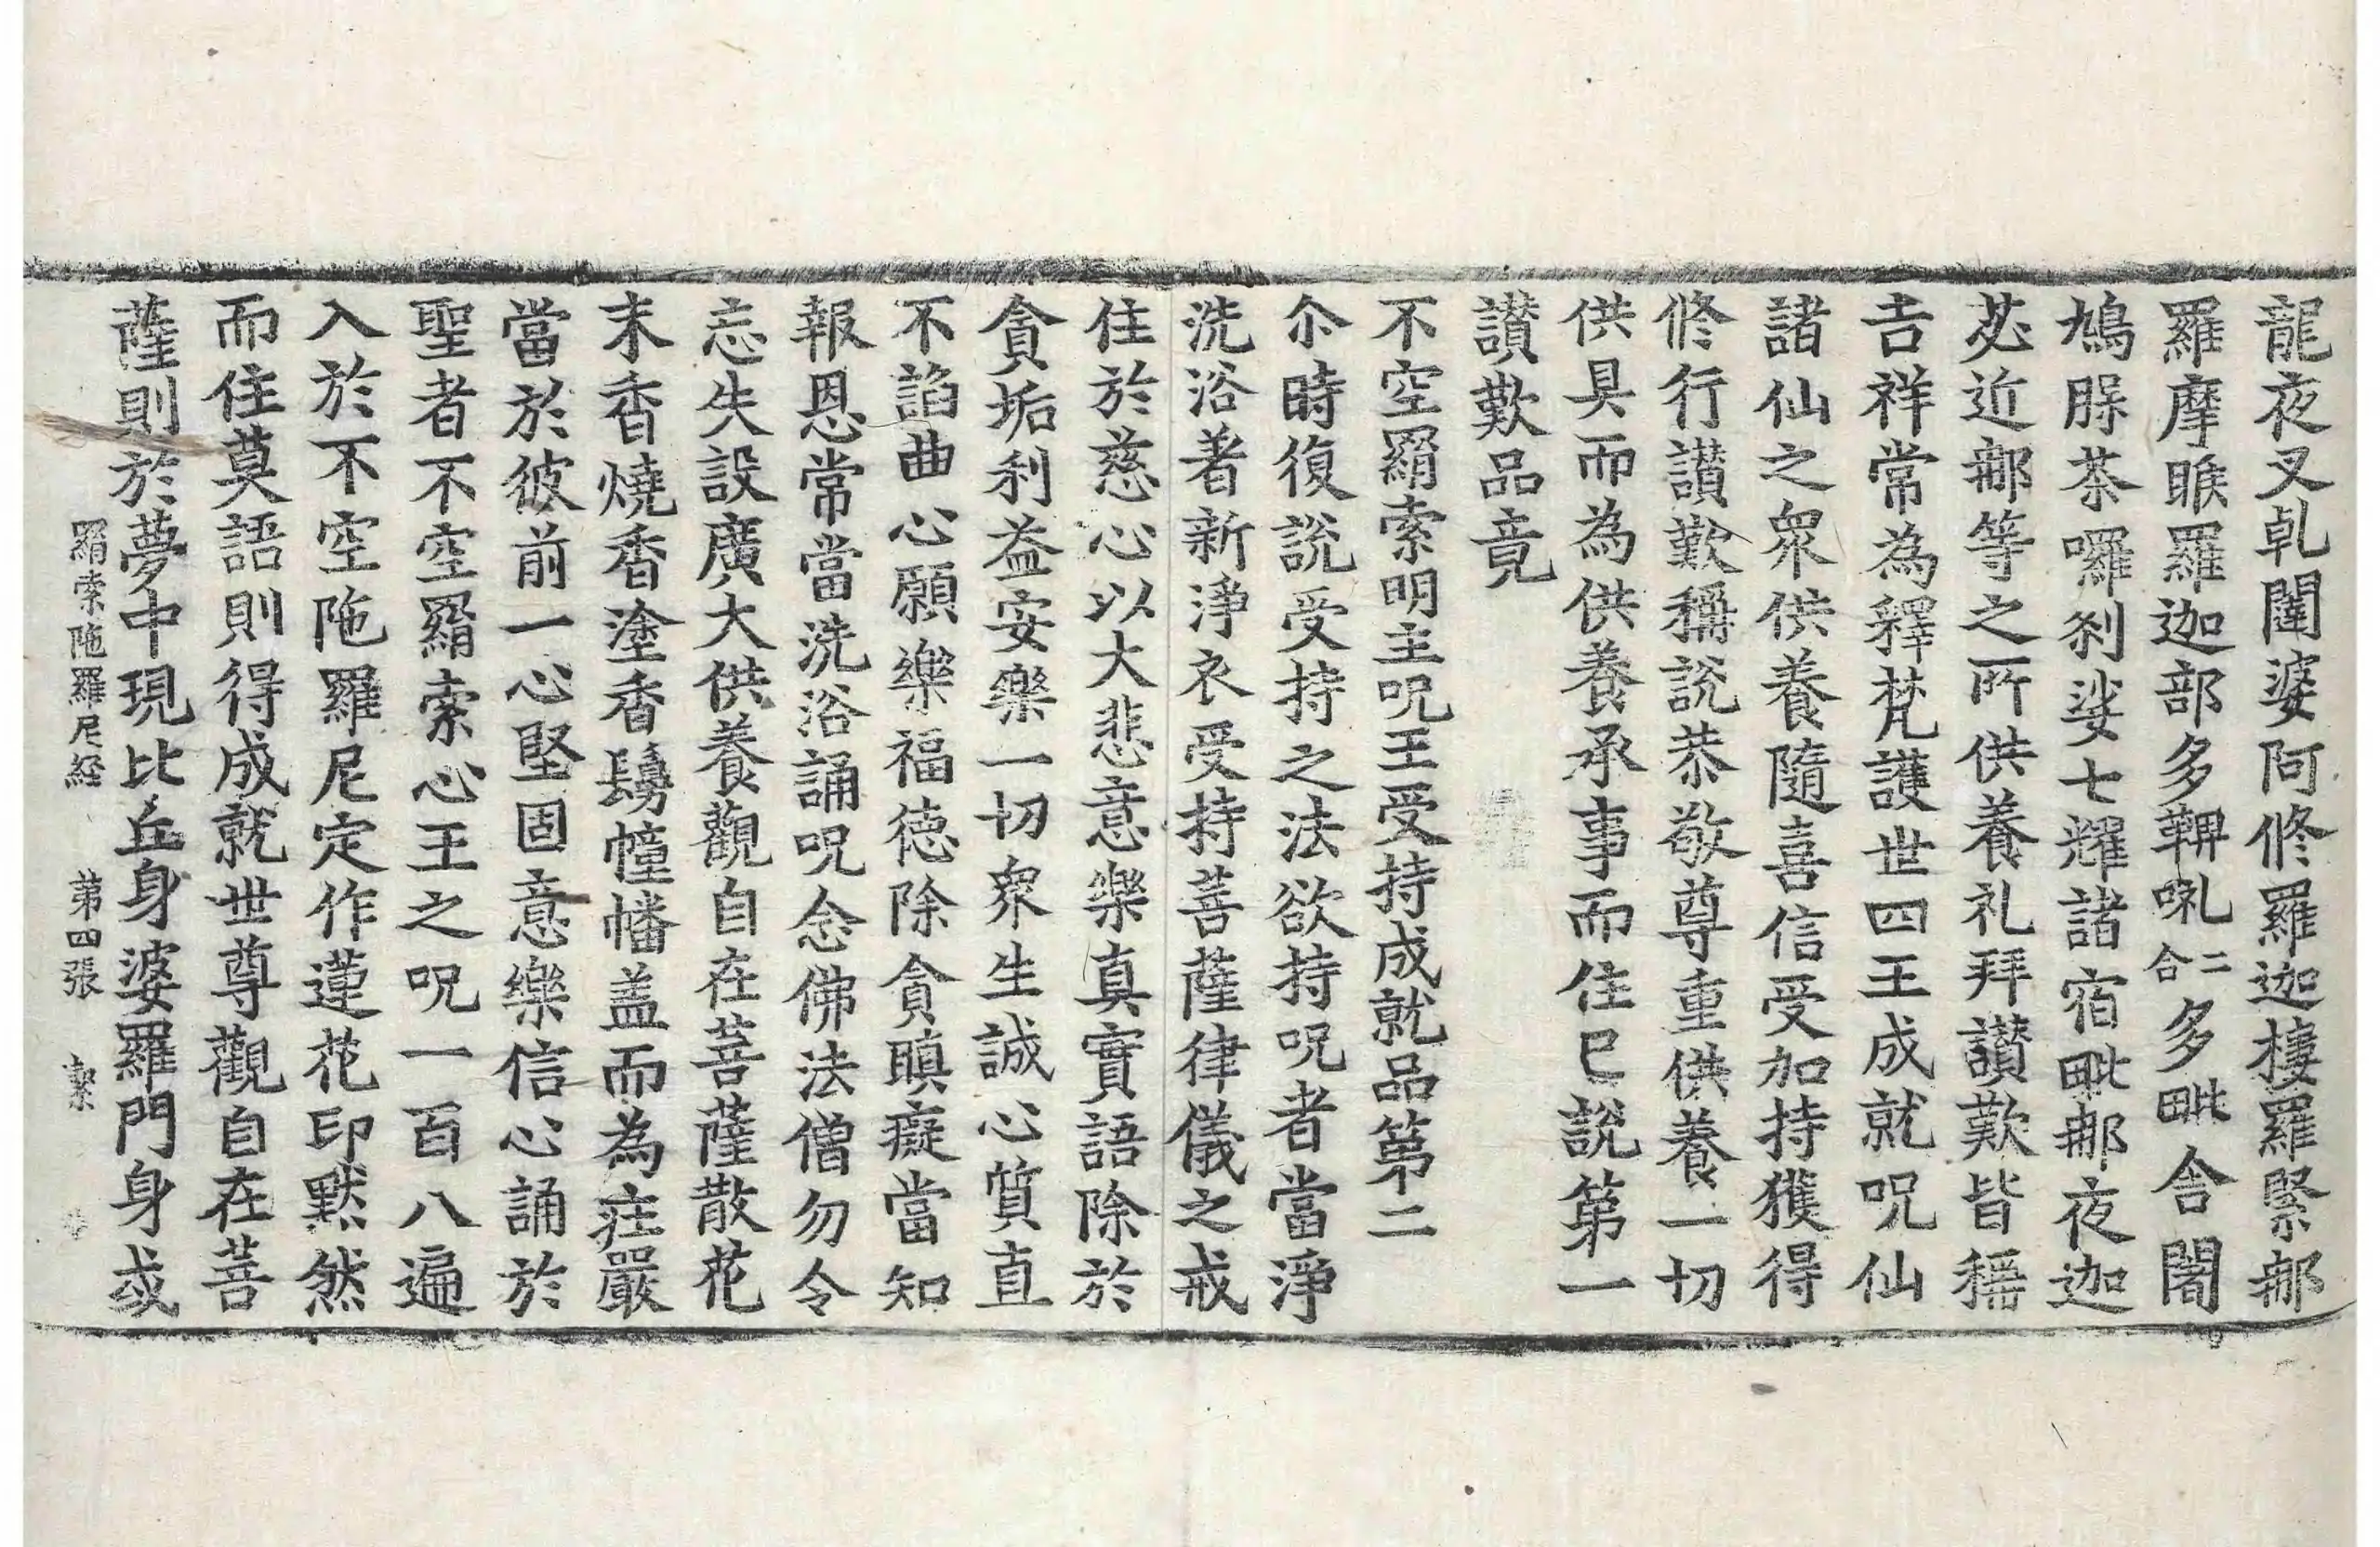 龍夜叉乹闥婆阿修羅迦樓羅緊那
羅摩睺羅迦部多鞞唎二合多毗舍闍
鳩腺茶囉剎娑七耀諸宿毗那夜迦
苾近那等之所供養礼拜讃歎皆稱
吉祥常為釋梵護世四王成就呪仙
諸仙之衆供養隨喜信受加持獲得
修行讃歎稱說恭敬尊重供養一切
供具而為供養承事而住已說第一
讃歎品竟
不空羂索明主呪王受持成就品第二
尒時復說受持之法欲持呪者當淨
洗浴著新淨衣受持菩薩律儀之戒
住於慈心以大悲意樂真實語除於
貪垢利益安樂一切衆生誠心質直
不諂曲心願樂福徳除貪瞋癡當知
報恩常當洗浴誦呪念佛法僧勿令
忘失設廣大供養觀自在菩薩散花
末香燒香塗香鬘幢幡盖而為莊嚴
當於彼前一心堅固意樂信心誦於
聖者不空羂索心王之呪一百八遍
入於不空陁羅尼定作蓮花印默然
而住莫語則得成就世尊觀自在菩
薩則於夢中現比丘身婆羅門身或
羂索陁羅尼経 第四張 𣫍